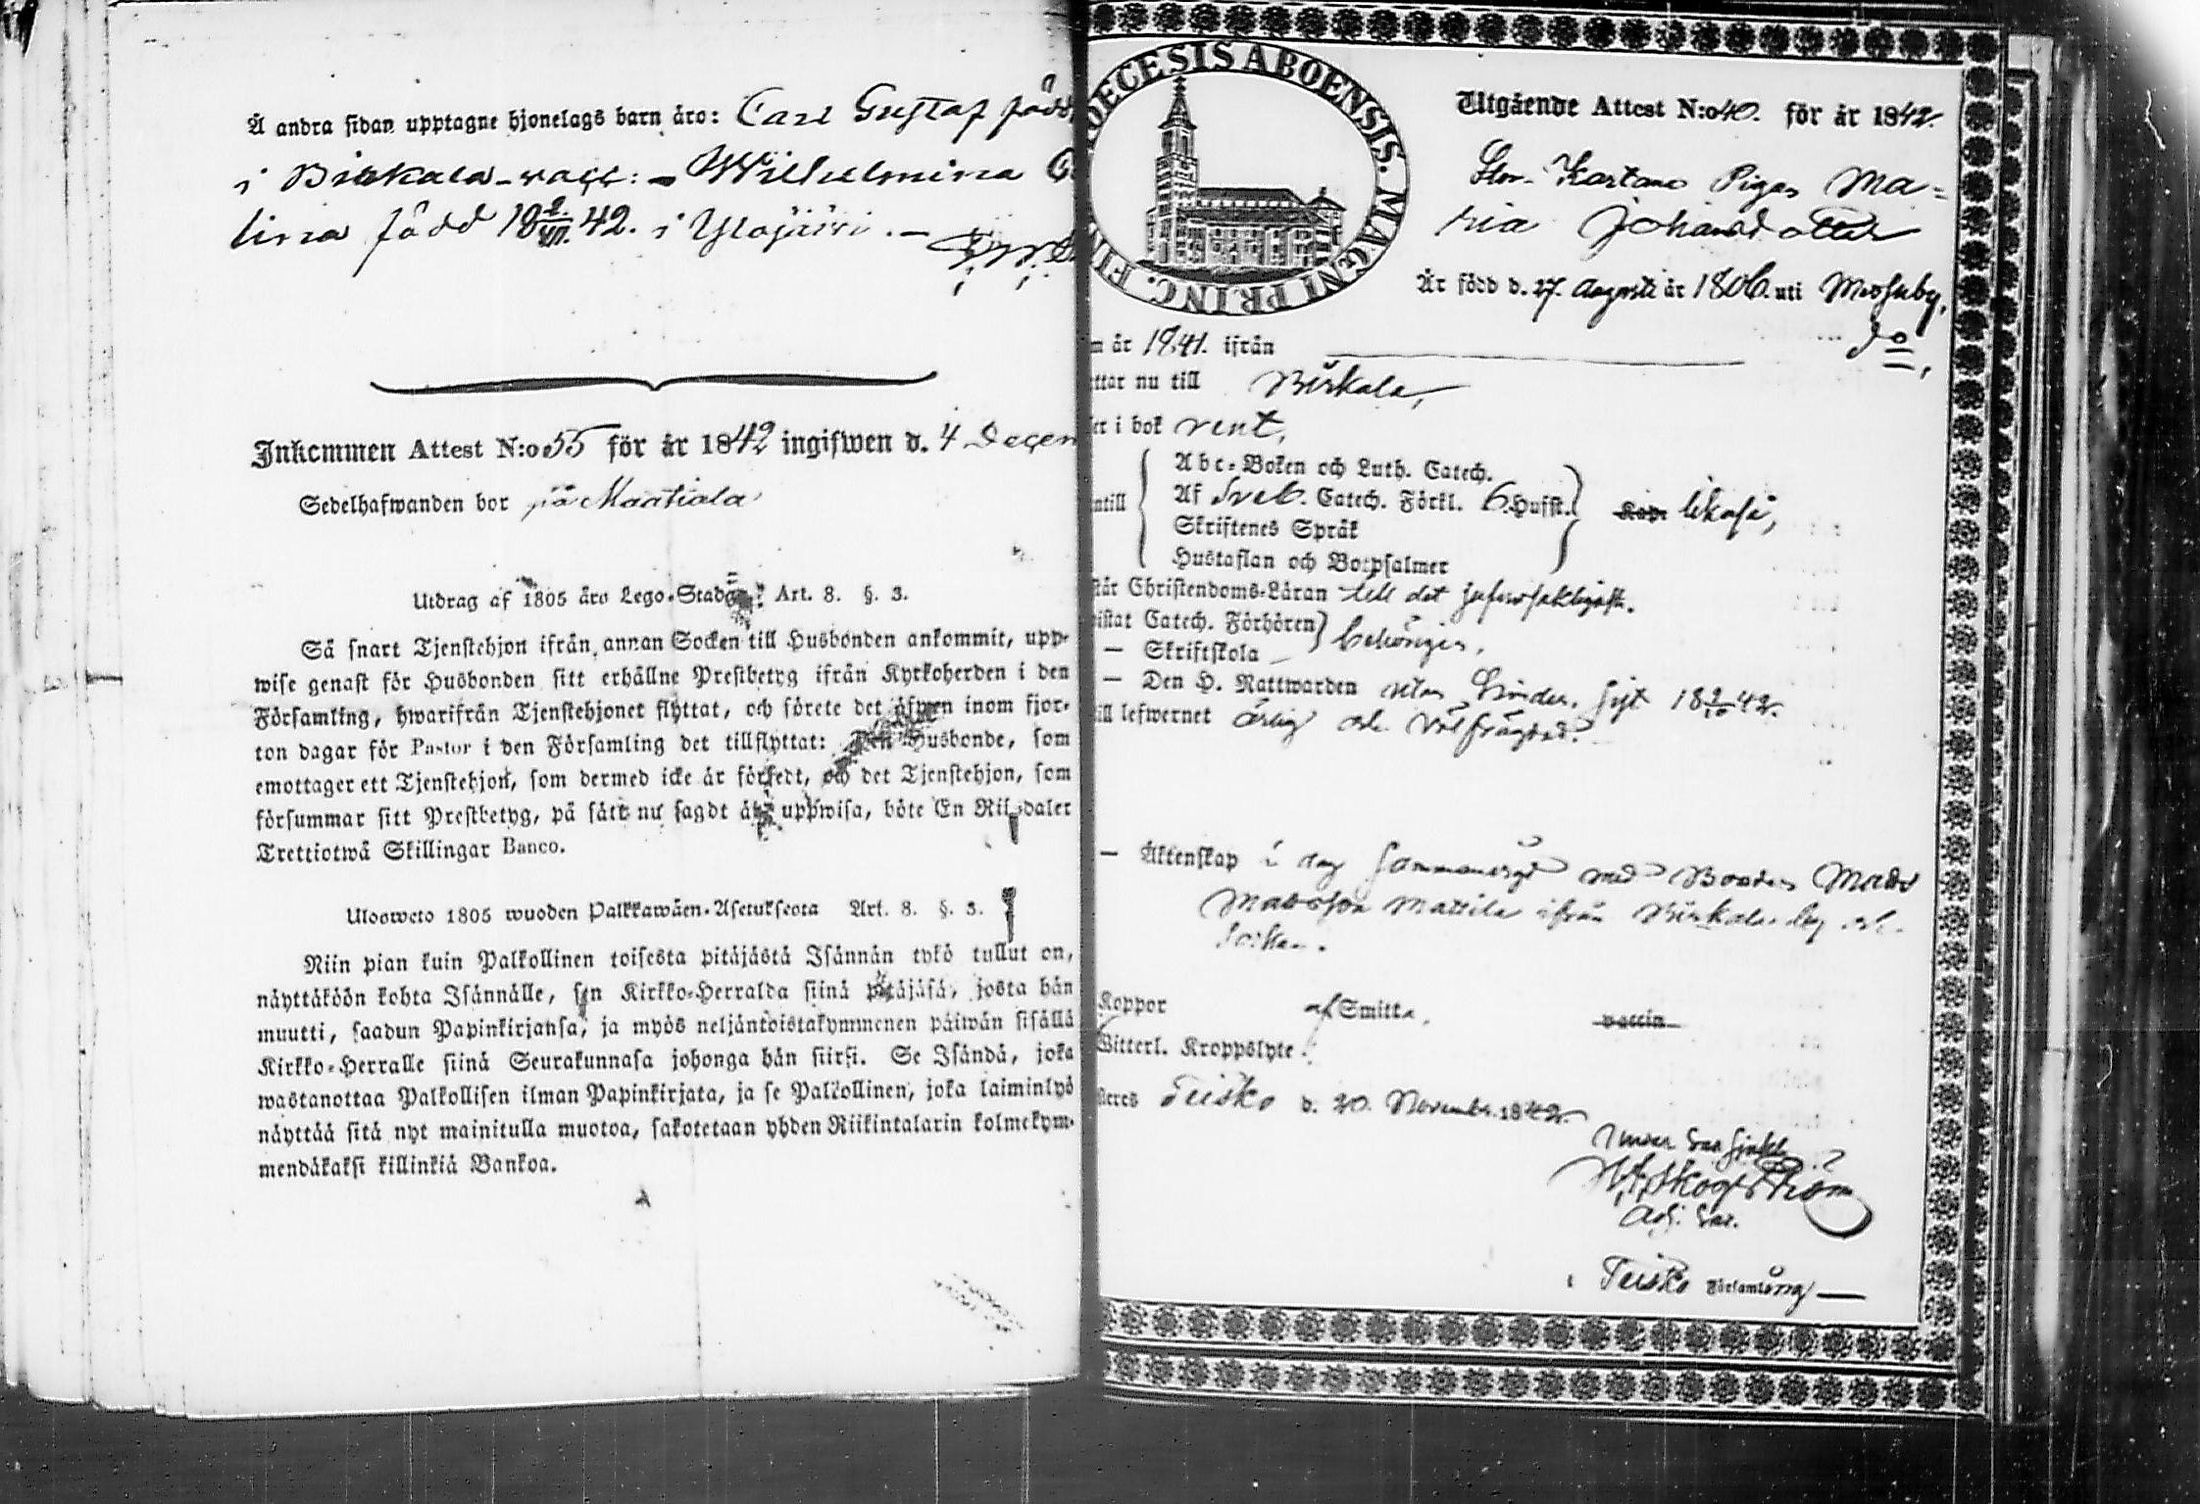 Å andra sidan upptagne hjonelags barn äro: Carl Gustaf född
i Birkala
Wilhelmina
lina född 18 42. i Ylöjärvi. —
Inkommen Attest N:o 55 för år 1842 ingifwen d. 4 Decem
Sedelhafwanden bor på Maatiala
Utdrag af 1805 års Lego-Stadga: Art. 8. §. 3.
Så snart Tjenstehjon ifrån annan Socken till Husbonden ankommit, upp-
wise genast för Husbonden sitt erhållne Prestbetyg ifrån Kyrkoherden i den
Församling, hwarifrån Tjenstehjonet flyttat, och förete det äfwen inom fjor-
ton dagar för Pastor i den Församling det tillflyttat: Den Husbonde, som
emottager ett Tjenstehjon, som dermed icke är försedt, och det Tjenstehjon, som
försummar sitt Prestbetyg, på sätt nu sagdt är, uppwisa, böte En Riksdaler
Trettiotwå Skillingar Banco.
Ulosweto 1805 wuoden Palkkawäen-Asetuksesta Art. 8. §. 3.
Niin pian kuin Palkollinen toisesta pitäjästä Isännän tykö tullut on,
näyttäköön kohta Isännälle, sen Kirkko-Herralda siinä pitäjäsä, josta hän
muutti, saadun Papinkirjansa, ja myös neljäntoistakymmenen päiwän sisällä
Kirkko-Herralle siinä Seurakunnasa johonga hän siirsi. Se Isändä, joka
wastanottaa Palkollisen ilman Papinkirjata, ja se Palkollinen, joka laiminlyö
näyttää sitä nyt mainitulla muotoa, sakotetaan yhden Riikintalarin kolmekym-
mendäkaksi killinkiä Bankoa.
DECESIS ABOENSIS. MAGNI PRINC. FIN
Utgående Attest N:o 40. för år 1842.
Kartano Pigan Ma-
ria Johansdotter
Är född d. 27. Augusti år 1806. uti Messuby,
do,
m år 1841. ifrån
ttar nu till Birkala,
er i bok rent,
Abc-Boken och Luth. Catech.
ntill Af Sveb. Catech. Förkl. 6. Hufst. Kap. likaså,
Skriftenes Språk
Hustaflan och Botpsalmer
står Christendoms-Läran till det
istat Catech. Förhören behörigen.
— Skriftskola
— Den H. Nattwarden utan hinder, sist 18 2/10 42.
till lefwernet ärlig och välfrägdad.
— Äktenskap i dag sammanvigd med Bonden Mads
Madsson Mattila ifrån Birkala by och
Socken.
Koppor af Smitta, vaccin
Witterl. Kroppslyte
teres Teisko d. 20. Novemb. 1842.
Skogström
Adj. Sac.
i Teisko Församling —